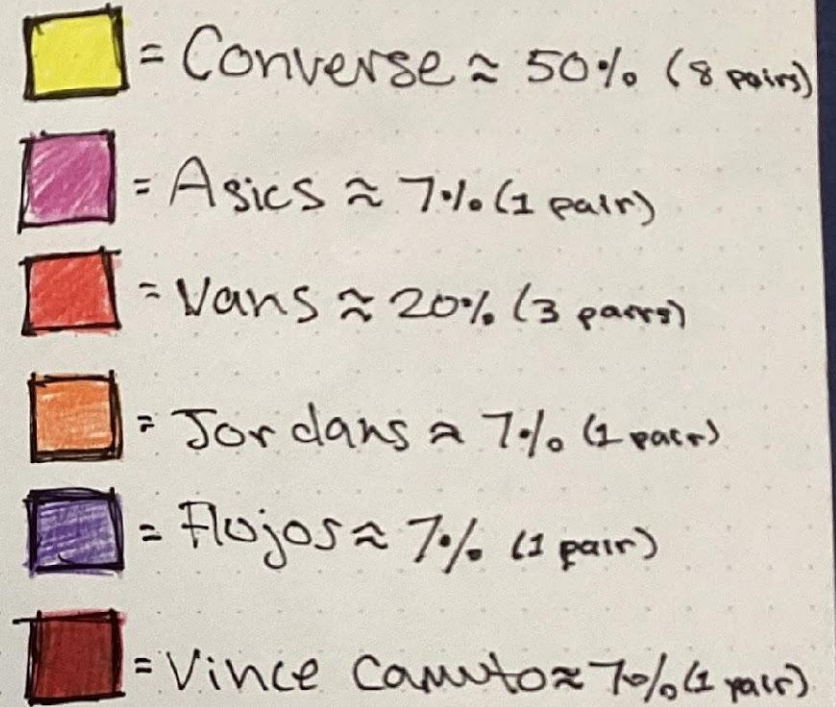 = Converse ≈ 50% (8 pairs)
= Asics ≈ 7% (1 pair)
= Vans ≈ 20% (3 pairs)
= Jordans ≈ 7% (1 pair)
= Flojos ≈ 7% (1 pair)
= Vince Camuto ≈ 7% (1 pair)